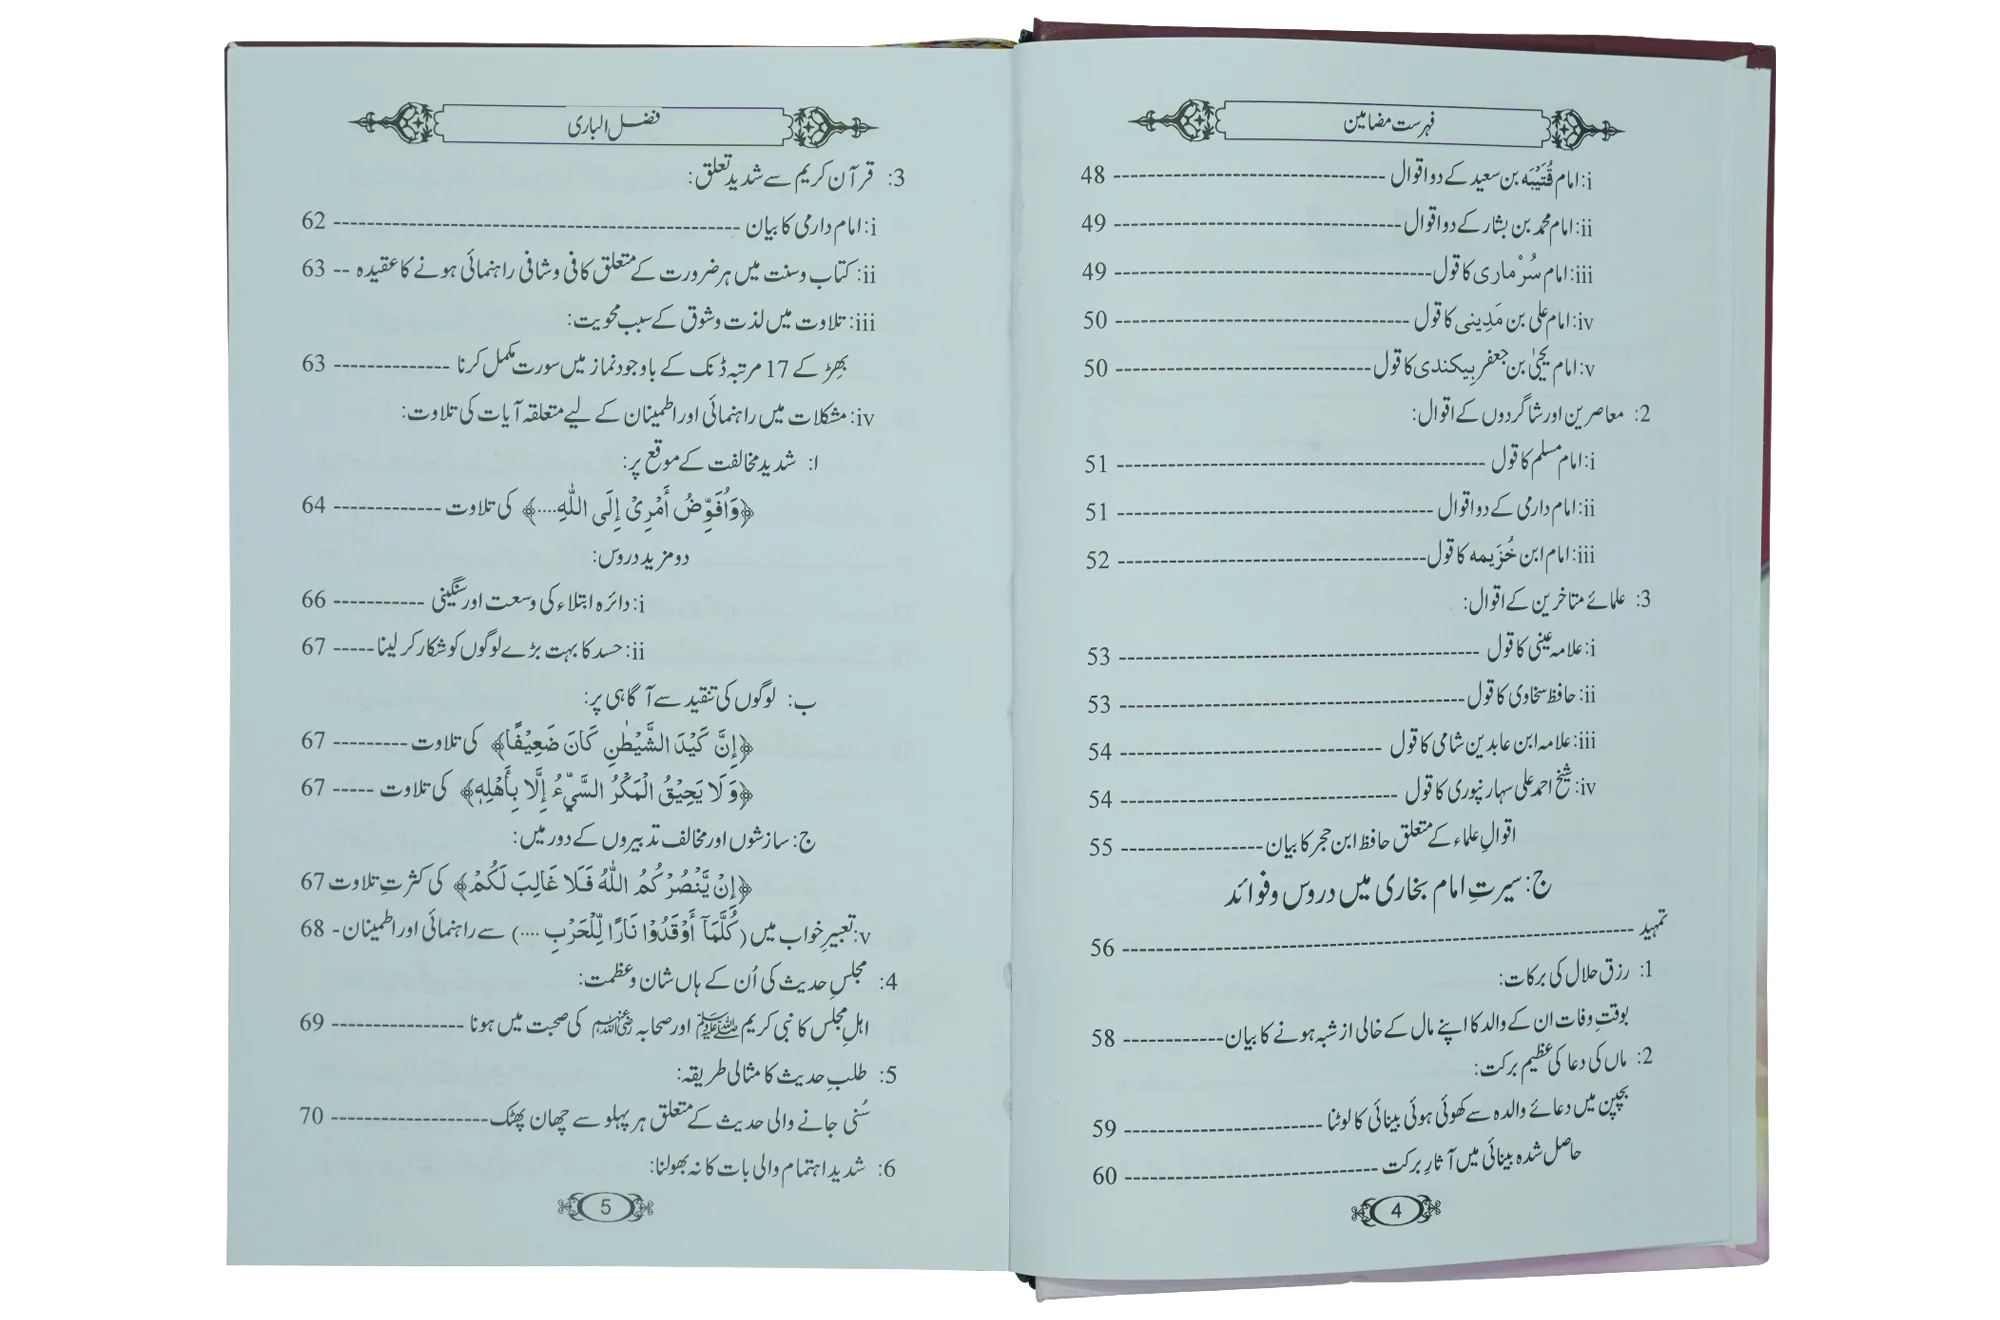 فہرست مضامین
i: امام قُتَیْبَہ بن سعید کے دو اقوال --------------------------- 48
ii: امام محمد بن بشار کے دو اقوال ---------------------------- 49
iii: امام سُرْماری کا قول -------------------------------- 49
iv: امام علی بن مَدِینی کا قول ----------------------------- 50
v: امام یحییٰ بن جعفر بِیکندی کا قول -------------------------- 50
2: معاصرین اور شاگردوں کے اقوال:
i: امام مسلم کا قول ------------------------------------- 51
ii: امام دارمی کے دو اقوال -------------------------------- 51
iii: امام ابن خُزَیمه کا قول ------------------------------- 52
3: علمائے متاخرین کے اقوال:
i: علامہ عینی کا قول ------------------------------------ 53
ii: حافظ سخاوی کا قول ----------------------------------- 53
iii: علامہ ابن عابدین شامی کا قول -------------------------- 54
iv: شیخ احمد علی سہارنپوری کا قول ---------------------------- 54
اقوالِ علماء کے متعلق حافظ ابن حجر کا بیان -------------- 55
ج: سیرتِ امام بخاری میں دروس و فوائد
تمہید --------------------------------------------------- 56
1: رزق حلال کی برکات:
بوقتِ وفات ان کے والد کا اپنے مال کے خالی از شبہ ہونے کا بیان ---------- 58
2: ماں کی دعا کی عظیم برکت:
بچپن میں دعائے والدہ سے کھوئی ہوئی بینائی کا لوٹنا -------------------- 59
حاصل شدہ بینائی میں آثارِ برکت ------------------------- 60
4
فضل الباری
3: قرآن کریم سے شدید تعلق:
i: امام دارمی کا بیان ---------------------------------------- 62
ii: کتاب وسنت میں ہر ضرورت کے متعلق کافی و شافی راہنمائی ہونے کا عقیدہ -- 63
iii: تلاوت میں لذت و شوق کے سبب محویت:
بھِڑ کے 17 مرتبہ ڈنک کے باوجود نماز میں سورت مکمل کرنا ------------ 63
iv: مشکلات میں راہنمائی اور اطمینان کے لیے متعلقہ آیات کی تلاوت:
ا: شدید مخالفت کے موقع پر:
﴿وَاُفَوِّضُ أَمْرِیْ إِلَی اللّٰهِ....﴾ کی تلاوت ----------- 64
دو مزید دروس:
i: دائرہ ابتلاء کی وسعت اور سنگینی ---------- 66
ii: حسد کا بہت بڑے لوگوں کو شکار کر لینا ----- 67
ب: لوگوں کی تنقید سے آگاہی پر:
﴿إِنَّ کَیْدَ الشَّیْطٰنِ کَانَ ضَعِیْفًا﴾ کی تلاوت --------- 67
﴿وَلَا یَحِیْقُ الْمَکْرُ السَّیِّءُ إِلَّا بِأَهْلِهٖ﴾ کی تلاوت ----- 67
ج: سازشوں اور مخالف تدبیروں کے دور میں:
﴿إِنْ یَّنْصُرْکُمُ اللّٰهُ فَلَا غَالِبَ لَکُمْ﴾ کی کثرتِ تلاوت 67
v: تعبیرِ خواب میں (کُلَّمَآ أَوْقَدُوْا نَارًا لِّلْحَرْبِ ....) سے راہنمائی اور اطمینان - 68
4: مجلسِ حدیث کی اُن کے ہاں شان و عظمت:
اہلِ مجلس کا نبی کریم ﷺ اور صحابہ رضی اللہ عنہم کی صحبت میں ہونا ------------- 69
5: طلبِ حدیث کا مثالی طریقہ:
سُنی جانے والی حدیث کے متعلق ہر پہلو سے چھان پھٹک ---------------- 70
6: شدید اہتمام والی بات کا نہ بھولنا:
5